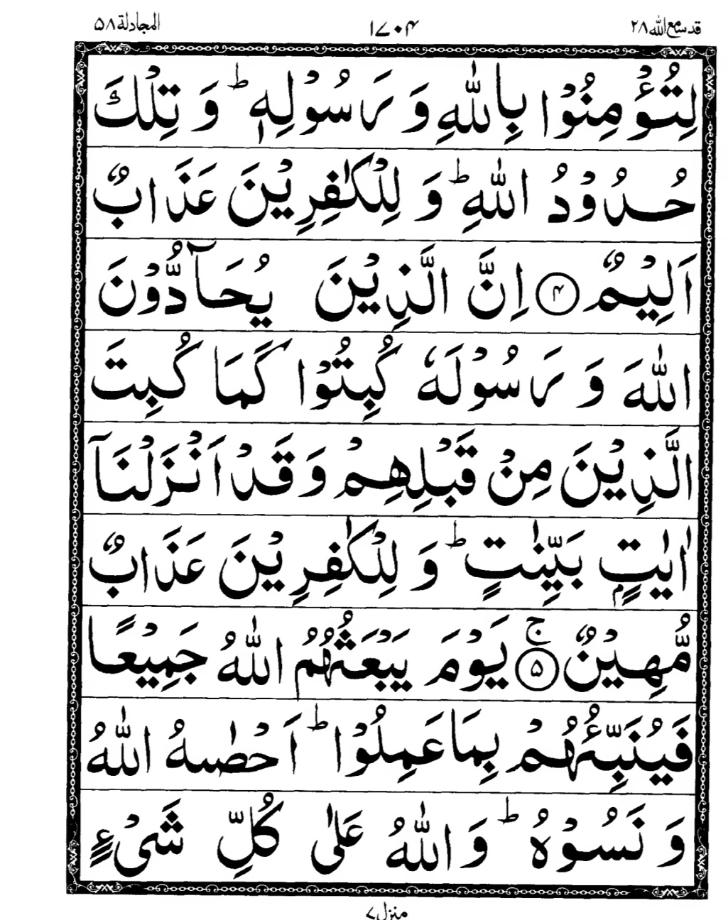 قد سمع الله ٢٨ ١٧٠٤ المجادلة ٥٨
لِتُؤْمِنُوْا بِاللّٰهِ وَ رَسُوْلِهٖ ؕ وَ تِلْكَ
حُدُوْدُ اللّٰهِ ؕ وَ لِلْكٰفِرِیْنَ عَذَابٌ
اَلِیْمٌ ۝۴ اِنَّ الَّذِیْنَ یُحَآدُّوْنَ
اللّٰهَ وَ رَسُوْلَهٗ كُبِتُوْا كَمَا كُبِتَ
الَّذِیْنَ مِنْ قَبْلِهِمْ وَ قَدْ اَنْزَلْنَاۤ
اٰیٰتٍۭ بَیِّنٰتٍ ؕ وَ لِلْكٰفِرِیْنَ عَذَابٌ
مُّهِیْنٌ ۝۵ۚ یَوْمَ یَبْعَثُهُمُ اللّٰهُ جَمِیْعًا
فَیُنَبِّئُهُمْ بِمَا عَمِلُوْا ؕ اَحْصٰىهُ اللّٰهُ
وَ نَسُوْهُ ؕ وَ اللّٰهُ عَلٰى كُلِّ شَیْءٍ
منزل ٧